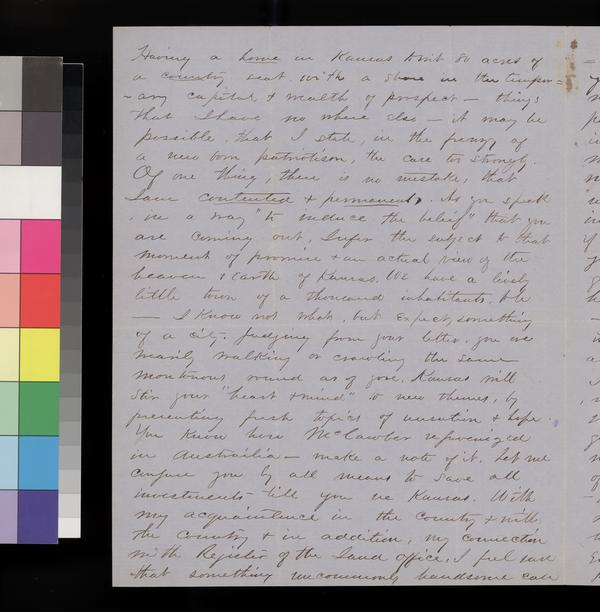 Having a home in Kansas to wit 80 acres of
a country seat with a share in the tempor=
-ary capital & wealth of prospect — things
that I have no where else — it may be
possible, that I state, in the frenzy of
a new born patriotism, the case too strongly.
Of one thing, there is no mistake, that
I am contented & permanent. As you speak
, in a way "to induce the belief" that you
are coming out, I refer the subject to that
moment of promise & an actual view of the
heaven & earth of Kansas. We have a lively
little town of a thousand inhabitants, to be
— I know not what, but expect something
of a city. Judging from your letter, you are
wearily walking or crawling the same
monotonous round as of yore. Kansas will
stir your "heart & mind" to new themes, by
presenting fresh topics of & hope.
You know how McCawber rejuvenized
in Austrailia — make a note of it. Let me
conjure you by all means to save all
investments till you see Kansas. With
my acquaintance in the country & with
the country & in addition, my connection
with Register of the Land office, I feel sure
that something uncommonly handsome can